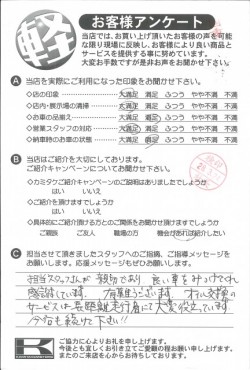 軽
お客様アンケート
当店では、お買い上げ頂いたお客様の声を可能
な限り現場に反映し、お客様により良い商品と
サービスを提供する事に努めています。
大変お手数ですが是非お声をお聞かせ下さい。
A 当店を実際にご利用になった印象をお聞かせ下さい。
◇店の印象 大満足 満足 ふつう やや不満 不満
◇店内・展示場の清掃 大満足 満足 ふつう やや不満 不満
◇お車の品揃え 大満足 満足 ふつう やや不満 不満
◇営業スタッフの対応 大満足 満足 ふつう やや不満 不満
◇納車時のお車の状態 大満足 満足 ふつう やや不満 不満
B 当店はご紹介を大切にしております。
ご紹介キャンペーンについてお聞かせ下さい。
◇カミタケご紹介キャンペーンのご説明はありましたでしょうか
はい いいえ
◇ご紹介をお聞かせ頂けますでしょうか
はい いいえ
◇具体的にご紹介頂ける方とのご関係をお聞かせ頂けますでしょうか
ご親族 ご友人 職場の方 機会があれば紹介したい
C 担当させて頂きましたスタッフへのご指摘、ご指導メッセージを
お願いします。応援メッセージもぜひお願いします。
担当スタッフさんが親切であり良い車をみつけてくれ
感謝しています。有難うございます オイル交換の
サービスは長距離走行者にて大変役立っています
今后も続けて下さい!!
K
ご協力に心よりお礼を申し上げます。
今後とも宜しくお引き立てご愛顧の程お願い申し上げます。
またのご来店を心からお待ちしております。